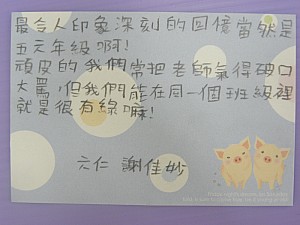 最令人印象深刻的回憶當然是
五元年級啊!
頑皮的我們常把老師氣得破口
大罵,但我們能在同一個班級裡
就是很有緣嘛!
六仁 謝佳妙